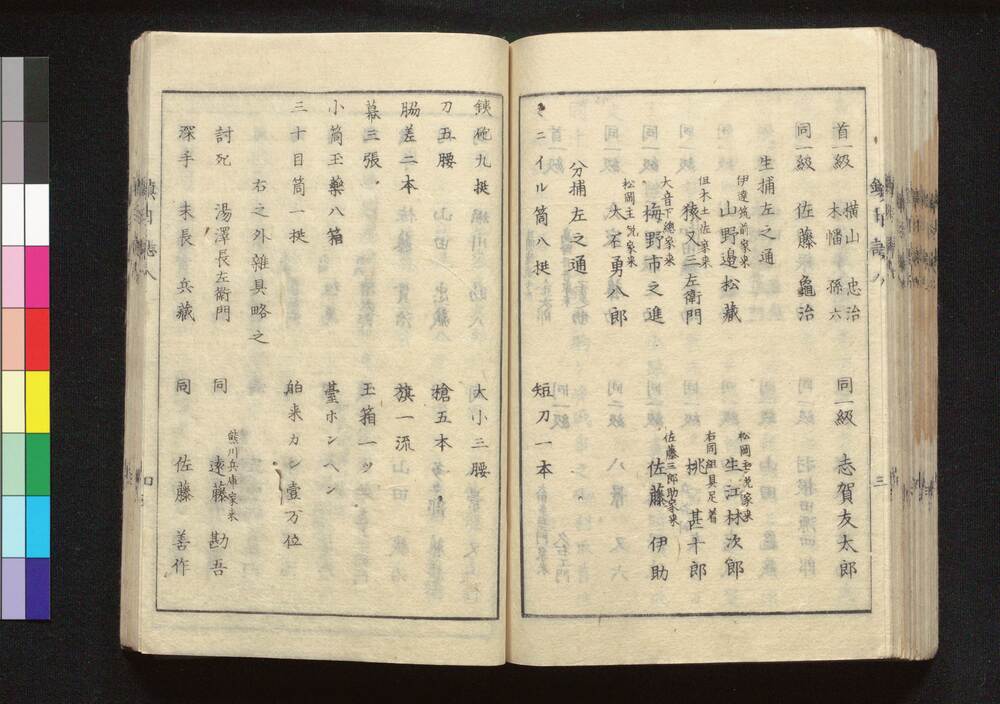 首一級 横山忠治
木幡孫六
同一級 志賀友太郎
同一級 佐藤龜治
生捕左之通
伊達筑前家来
山野邉松藏
松岡主税家来
生江林次郎
但木土佐家来
猿又三左衛門
右同組具足着
桃甚十郎
大音下總家来
梅野市之進
佐藤三郎助家来
佐藤伊助
松岡主税家来
大石勇八郎
分捕左之通
ミニイル筒八挺
短刀一本
鉄砲九挺
大小三腰
刀五腰
槍五本
脇差二本
旗一流
幕三張
玉箱一ツ
小筒玉藥八箱
臺ホンヘン
三十目筒一挺
舶来カン壹万位
右之外雜具略之
討死 湯澤長左衛門
熊川兵庫家来
同 遠藤勘吾
深手 末長兵藏
同 佐藤善作
三
四